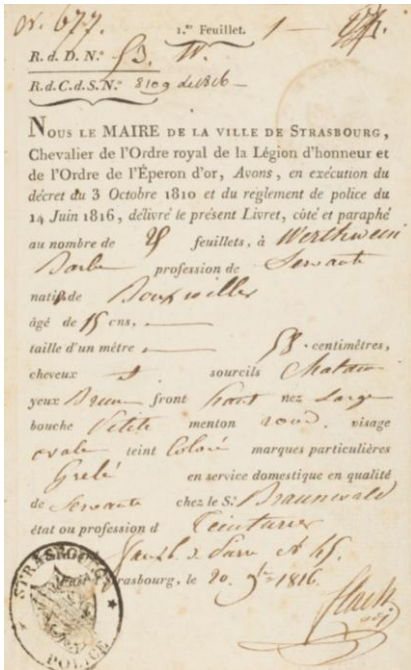 N. 677. 1.er Feuillet. 1
R. d. D. N.º 53. W.
R. d. C. d. S. N.º 8109 de 1816
NOUS LE MAIRE DE LA VILLE DE STRASBOURG,
Chevalier de l'Ordre royal de la Légion d'honneur et
de l'Ordre de l'Éperon d'or, Avons, en exécution du
décret du 3 Octobre 1810 et du réglement de police du
14 Juin 1816, délivré le présent Livret, coté et paraphé
au nombre de 25 feuillets, à Werthwein
Barbe profession de Servante
natif de Bouxwiller
âgé de 15 ans,
taille d'un mètre 58. centimètres,
cheveux & sourcils Chatain
yeux Brun front haut nez Large
bouche Petite menton rond. visage
ovale teint Coloré marques particulières
Grelé en service domestique en qualité
de Servante chez le S.r Braunwald
état ou profession d Teinturier
Strasbourg, le 20. 9bre 1816.
STRASBOURG
POLICE